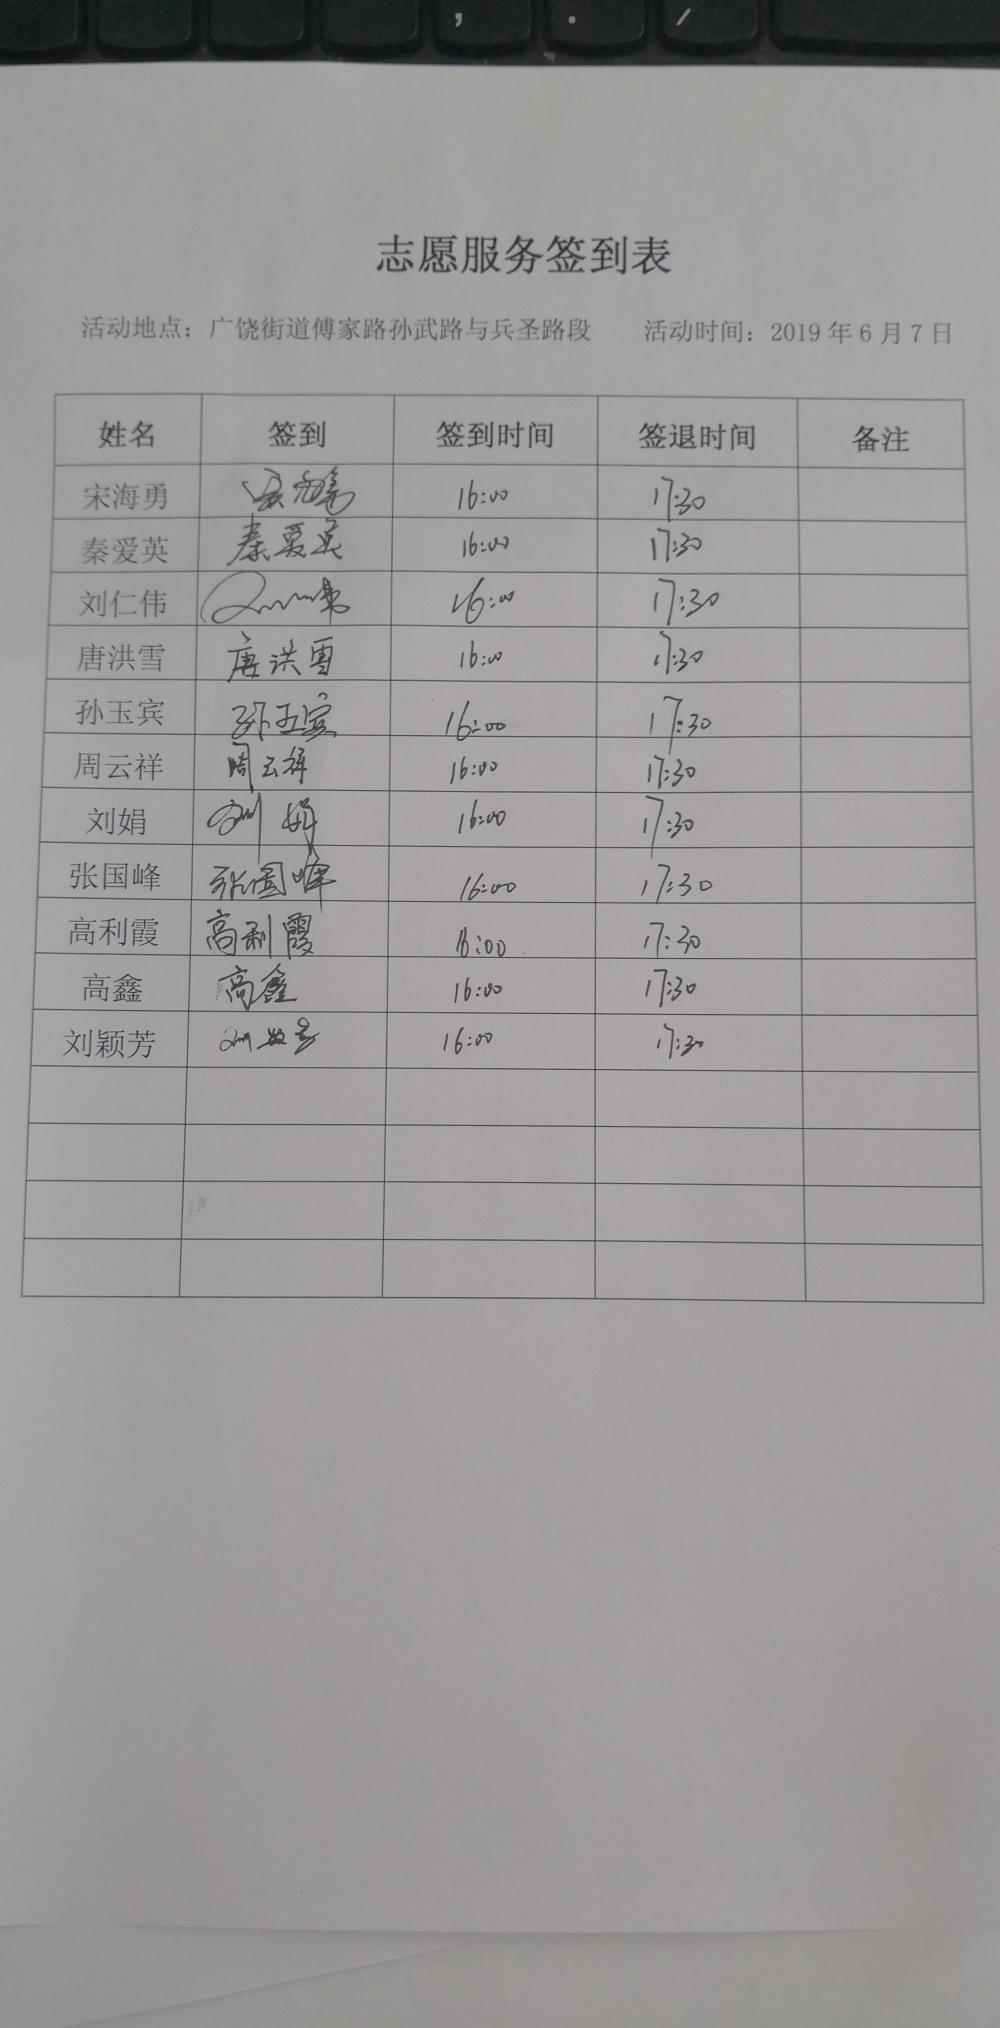 志愿服务签到表
活动地点：广饶街道傅家路孙武路与兵圣路段 活动时间：2019年6月7日
姓名 签到 签到时间 签退时间 备注
宋海勇 16:00 17:30
秦爱英 秦爱英 16:00 17:30
刘仁伟 16:00 17:30
唐洪雪 唐洪雪 16:00 17:30
孙玉宾 孙玉宾 16:00 17:30
周云祥 周云祥 16:00 17:30
刘娟 刘娟 16:00 17:30
张国峰 张国峰 16:00 17:30
高利霞 高利霞 16:00 17:30
高鑫 高鑫 16:00 17:30
刘颖芳 16:00 17:30